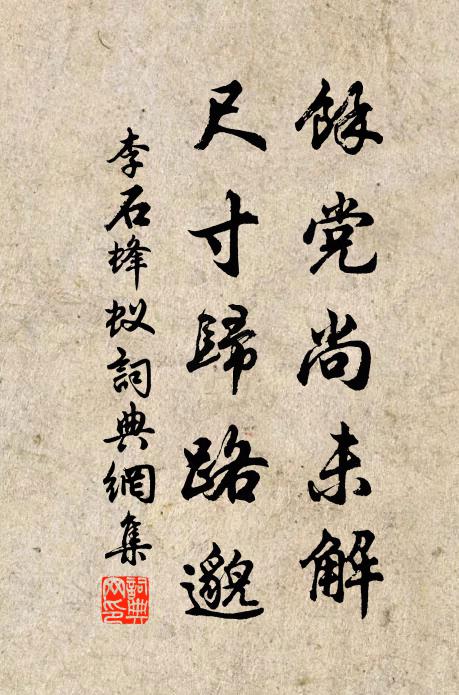 餘党尚未解
尺寸歸路邈
李石蜂蚁詞典網集
詞典
网印